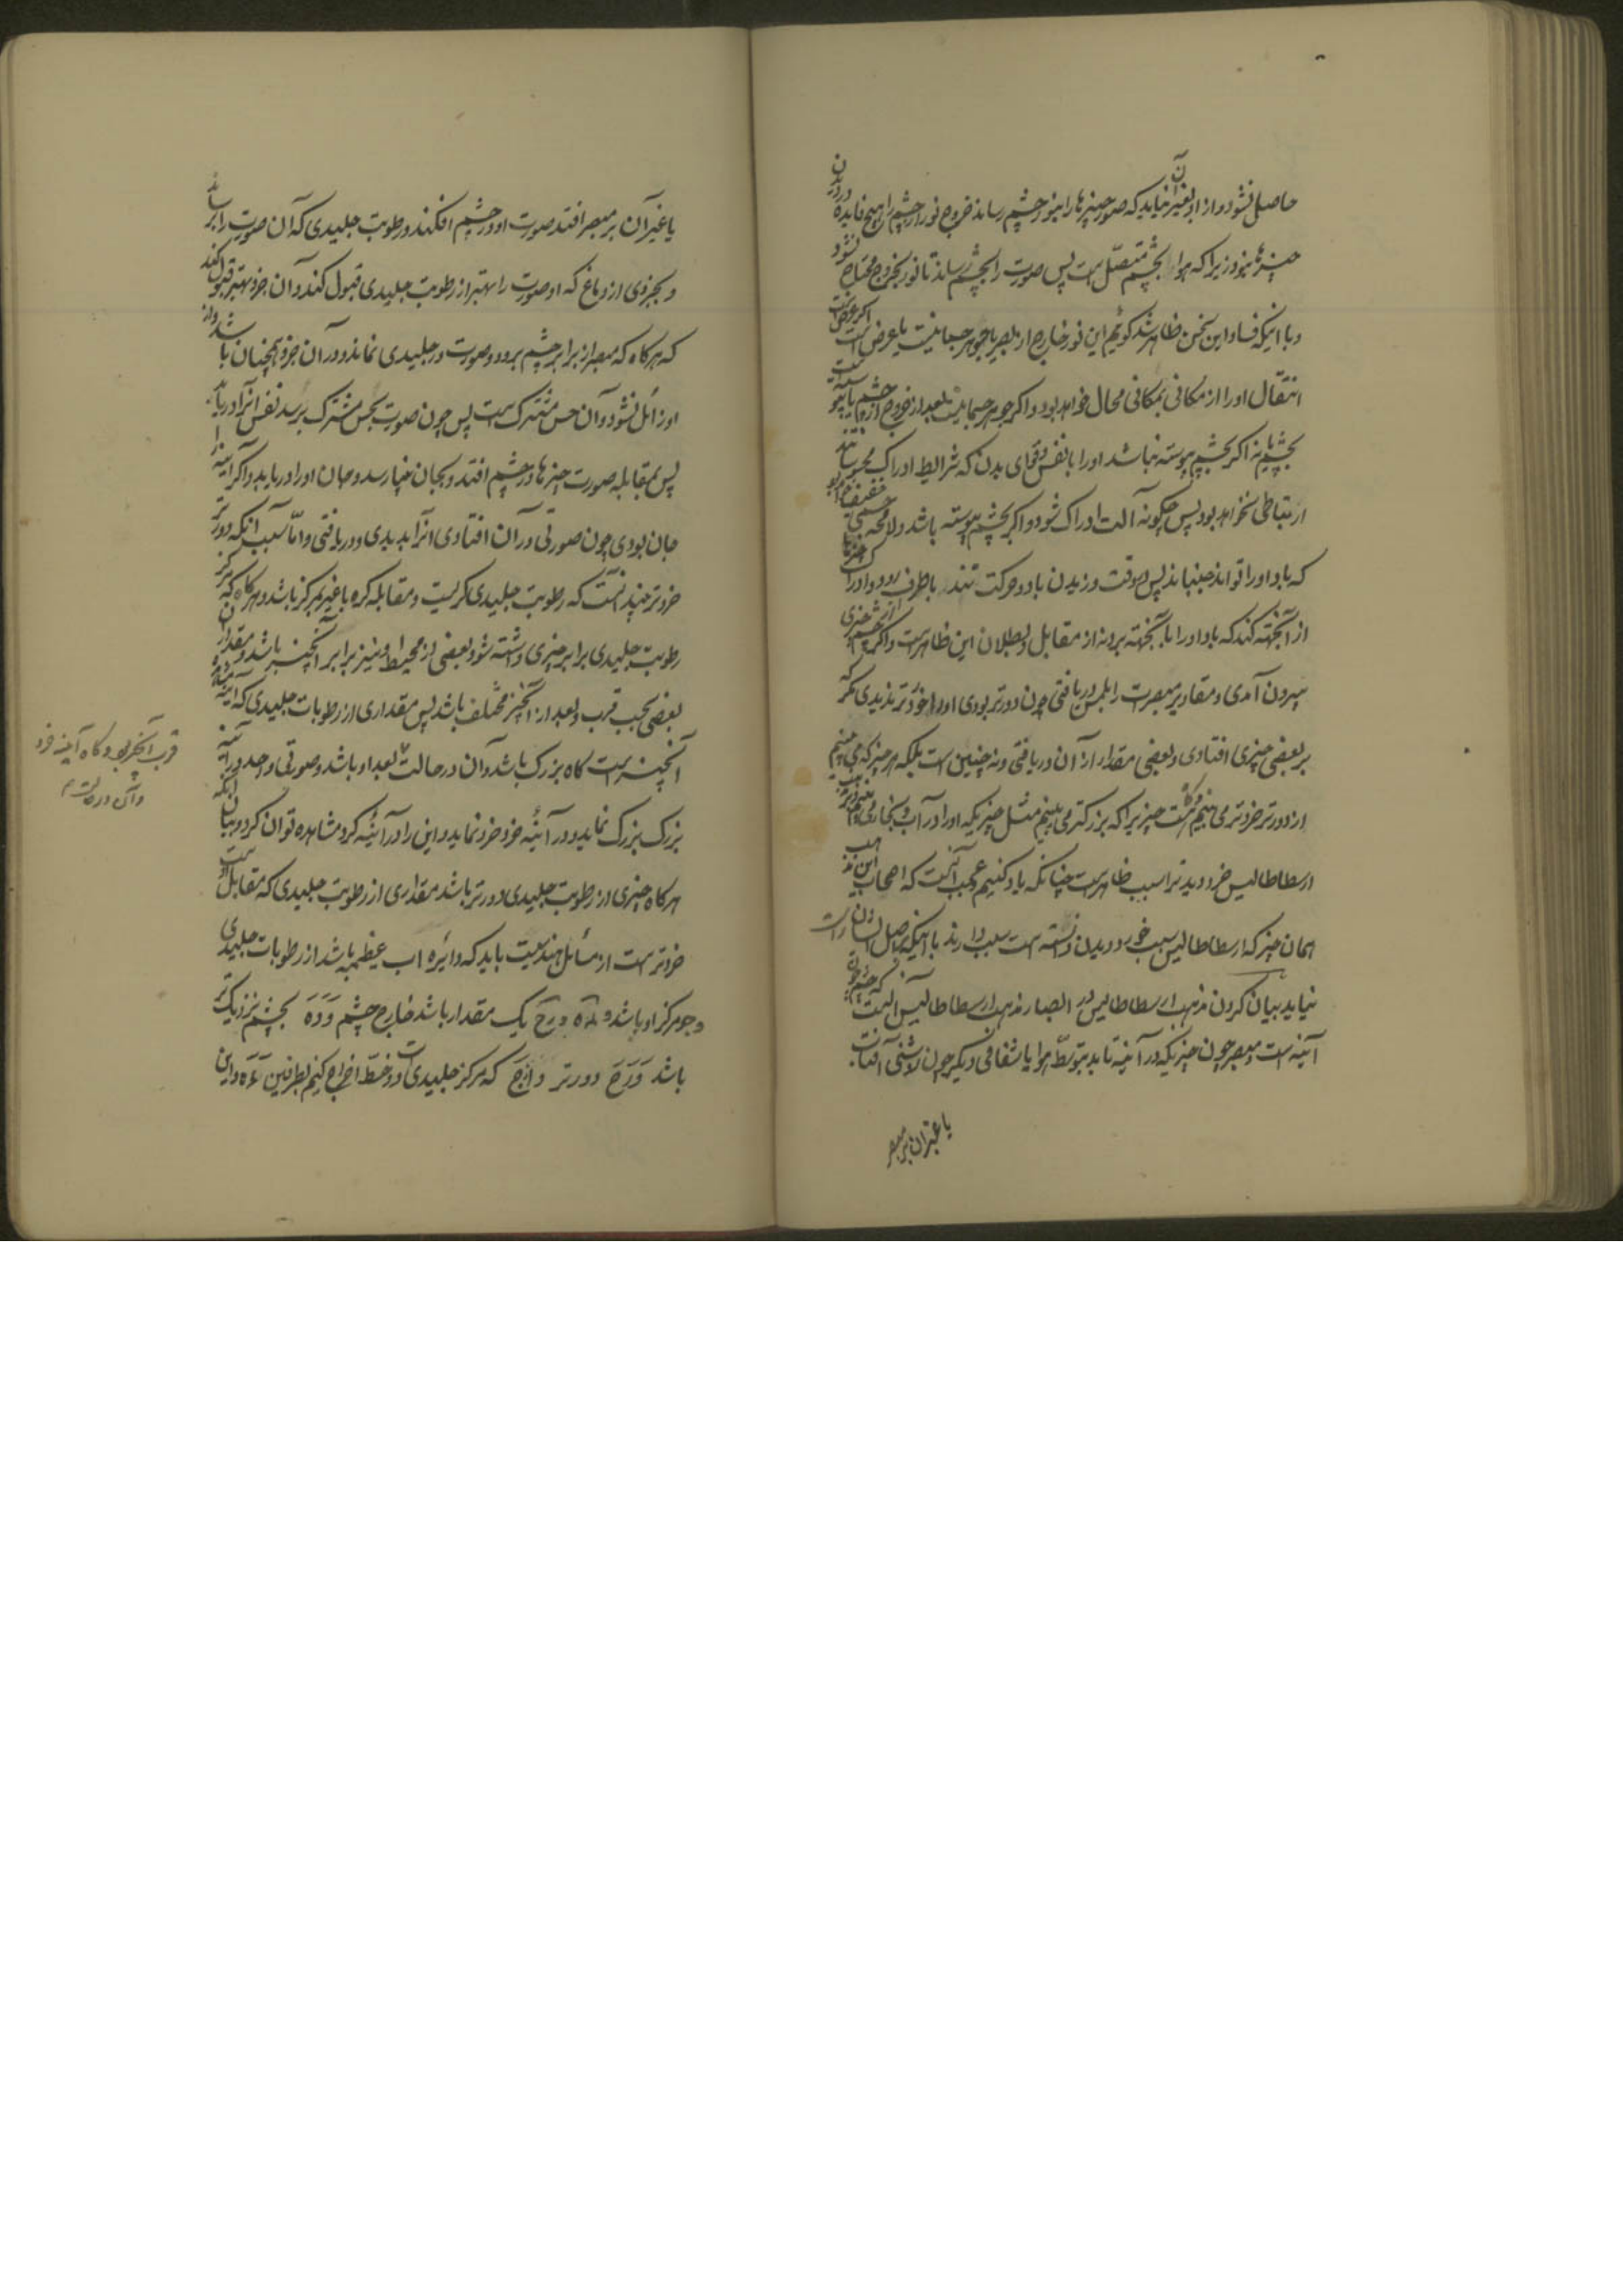 حاصل نشود و از او بغیر آن نیاید که صور چیزها را بنور چشم رساند خروج نور از چشم را هیچ فایده در دیدن
چیزها نبود زیرا که هوا بچشم متصل است پس صورت را بچشم رساند تا نور بخروج محتاج نشود
و با اینکه فساد این سخن ظاهر شد کوئیم این نور خارج از بصر یا جوهر جسمانیست یا عرض است اکر عرض است
انتقال او را از مکانی بمکانی محال خواهد بود و اکر جوهر جسمانیست بعد از خروج از چشم یا پیوسته است
بچشم یا نه اکر بچشم پیوسته نباشد او را با نفس و قوای بدن که شرایط ادراک محسوساتند
ارتباطی نخواهد بود پس چکونه آلت ادراک شود و اکر بچشم پیوسته باشد ولا محاله جسمی خفیف خواهد بود
که باد او را تواند جنبانید پس در وقت وزیدن باد و حرکت تند باطراف رود و ادراک چیزها
از آنجهت کند که باد او را بآنجهت برد نه از مقابل و بطلان این ظاهرست و اکر از چشم چیزی
بیرون آمدی و مقادیر مبصرات را بلمس دریافتی چون دورتر بودی او را خوردتر ندیدی مکر که
بر بعضی چیزی افتادی و بعضی مقدار از آن دریافتی و نه چنین است بلکه هر چیز که می بینیم
از دورتر خردتر می بینیم و کاه هست چیزیرا که بزرکتر می بینیم مثل چیزیکه او را در آب و بخار می بینیم و بر مذهب
ارسطاطالیس خرد دیدن را سبب ظاهرست چنانکه یاد کنیم و عجب آنست که اصحاب این مذهب
همان چیز که ارسطاطالیس سبب خورد دیدن دانسته است سبب دارند با اینکه بر اصل ایشان راست
نیاید بیان کردن مذهب ارسطاطالیس در ابصار مذهب ارسطاطالیس آنست که چشم چون
آینه است و مبصر چون چیزیکه در آینه نماید بتوسط هوا یا شفافی دیکر چون روشنی آفتاب
یا غیر آن بر مبصر
یا غیر آن بر مبصر افتد صورت او در چشم افکند در رطوبت جلیدی که آن صورت را برساند
و بجزوی از دماغ که او صورت را بهتر از رطوبت جلیدی قبول کند و آن جزو بهتر قبول کند
که هر کاه که مبصر از برابر چشم برود و صورت در جلیدی نماند و در آن جزو همچنان باشد و از
او زائل نشود و آن حس مشترک است پس چون صورت بحس مشترک برسد نفس آنرا دریابد
پس بمقابله صورت چیزها در چشم افتد و بجان میرسد و جان او را دریابد و اکر آینه را
جان بودی چون صورتی در آن افتادی آنرا بدیدی و دریافتی و اما سبب آنکه دورتر
خردتر بیند آنست که رطوبت جلیدی کریست و مقابله کره با غیر بمرکز باشد و هر کاه که مرکز
رطوبت جلیدی برابر چیزی داشته شود بعضی از محیط او نیز برابر آنچیز باشد و مقدار آن
بعضی بحسب قرب و بعد از آنچیز مختلف باشد پس مقداری از رطوبات جلیدی که آینه
آنچیز است کاه بزرک باشد و آن در حالت بعد او باشد و صورتی واحد در آینه
بزرک بزرک نماید و در آئینه خرد خرد نماید و این را در آئینه کرد مشاهده توان کرد و بیان آنکه
هر کاه چیزی از رطوبت جلیدی دورتر باشد مقداری از رطوبت جلیدی که مقابل اوست
خردتر است از مسائل هندسیست باید که دائره اب عظیمه باشد از رطوبات جلیدی
و ج مرکز او باشد و ده و رح یک مقدار باشد خارج چشم و ده بچشم نزدیکتر
باشد و رح دورتر و از ج که مرکز جلیدی است دو خط اخراج کنیم بطرفین ده و این
قرب آنچیز بود و کاه آینه خرد
و آن در حالت